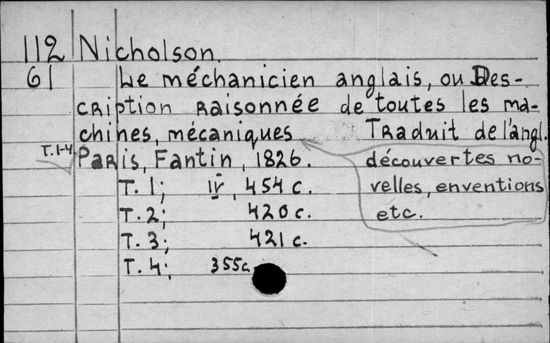 112 Nicholson.
61 Le méchanicien anglais, ou Des-
cription raisonnée de toutes les ma-
chines, mécaniques Traduit de l'angl.
T.1-4 Paris, Fantin, 1826. découvertes no-
T. 1; IV, 454 c. velles, enventions
T. 2; 420 c. etc.
T. 3; 421 c.
T. 4; 355c.